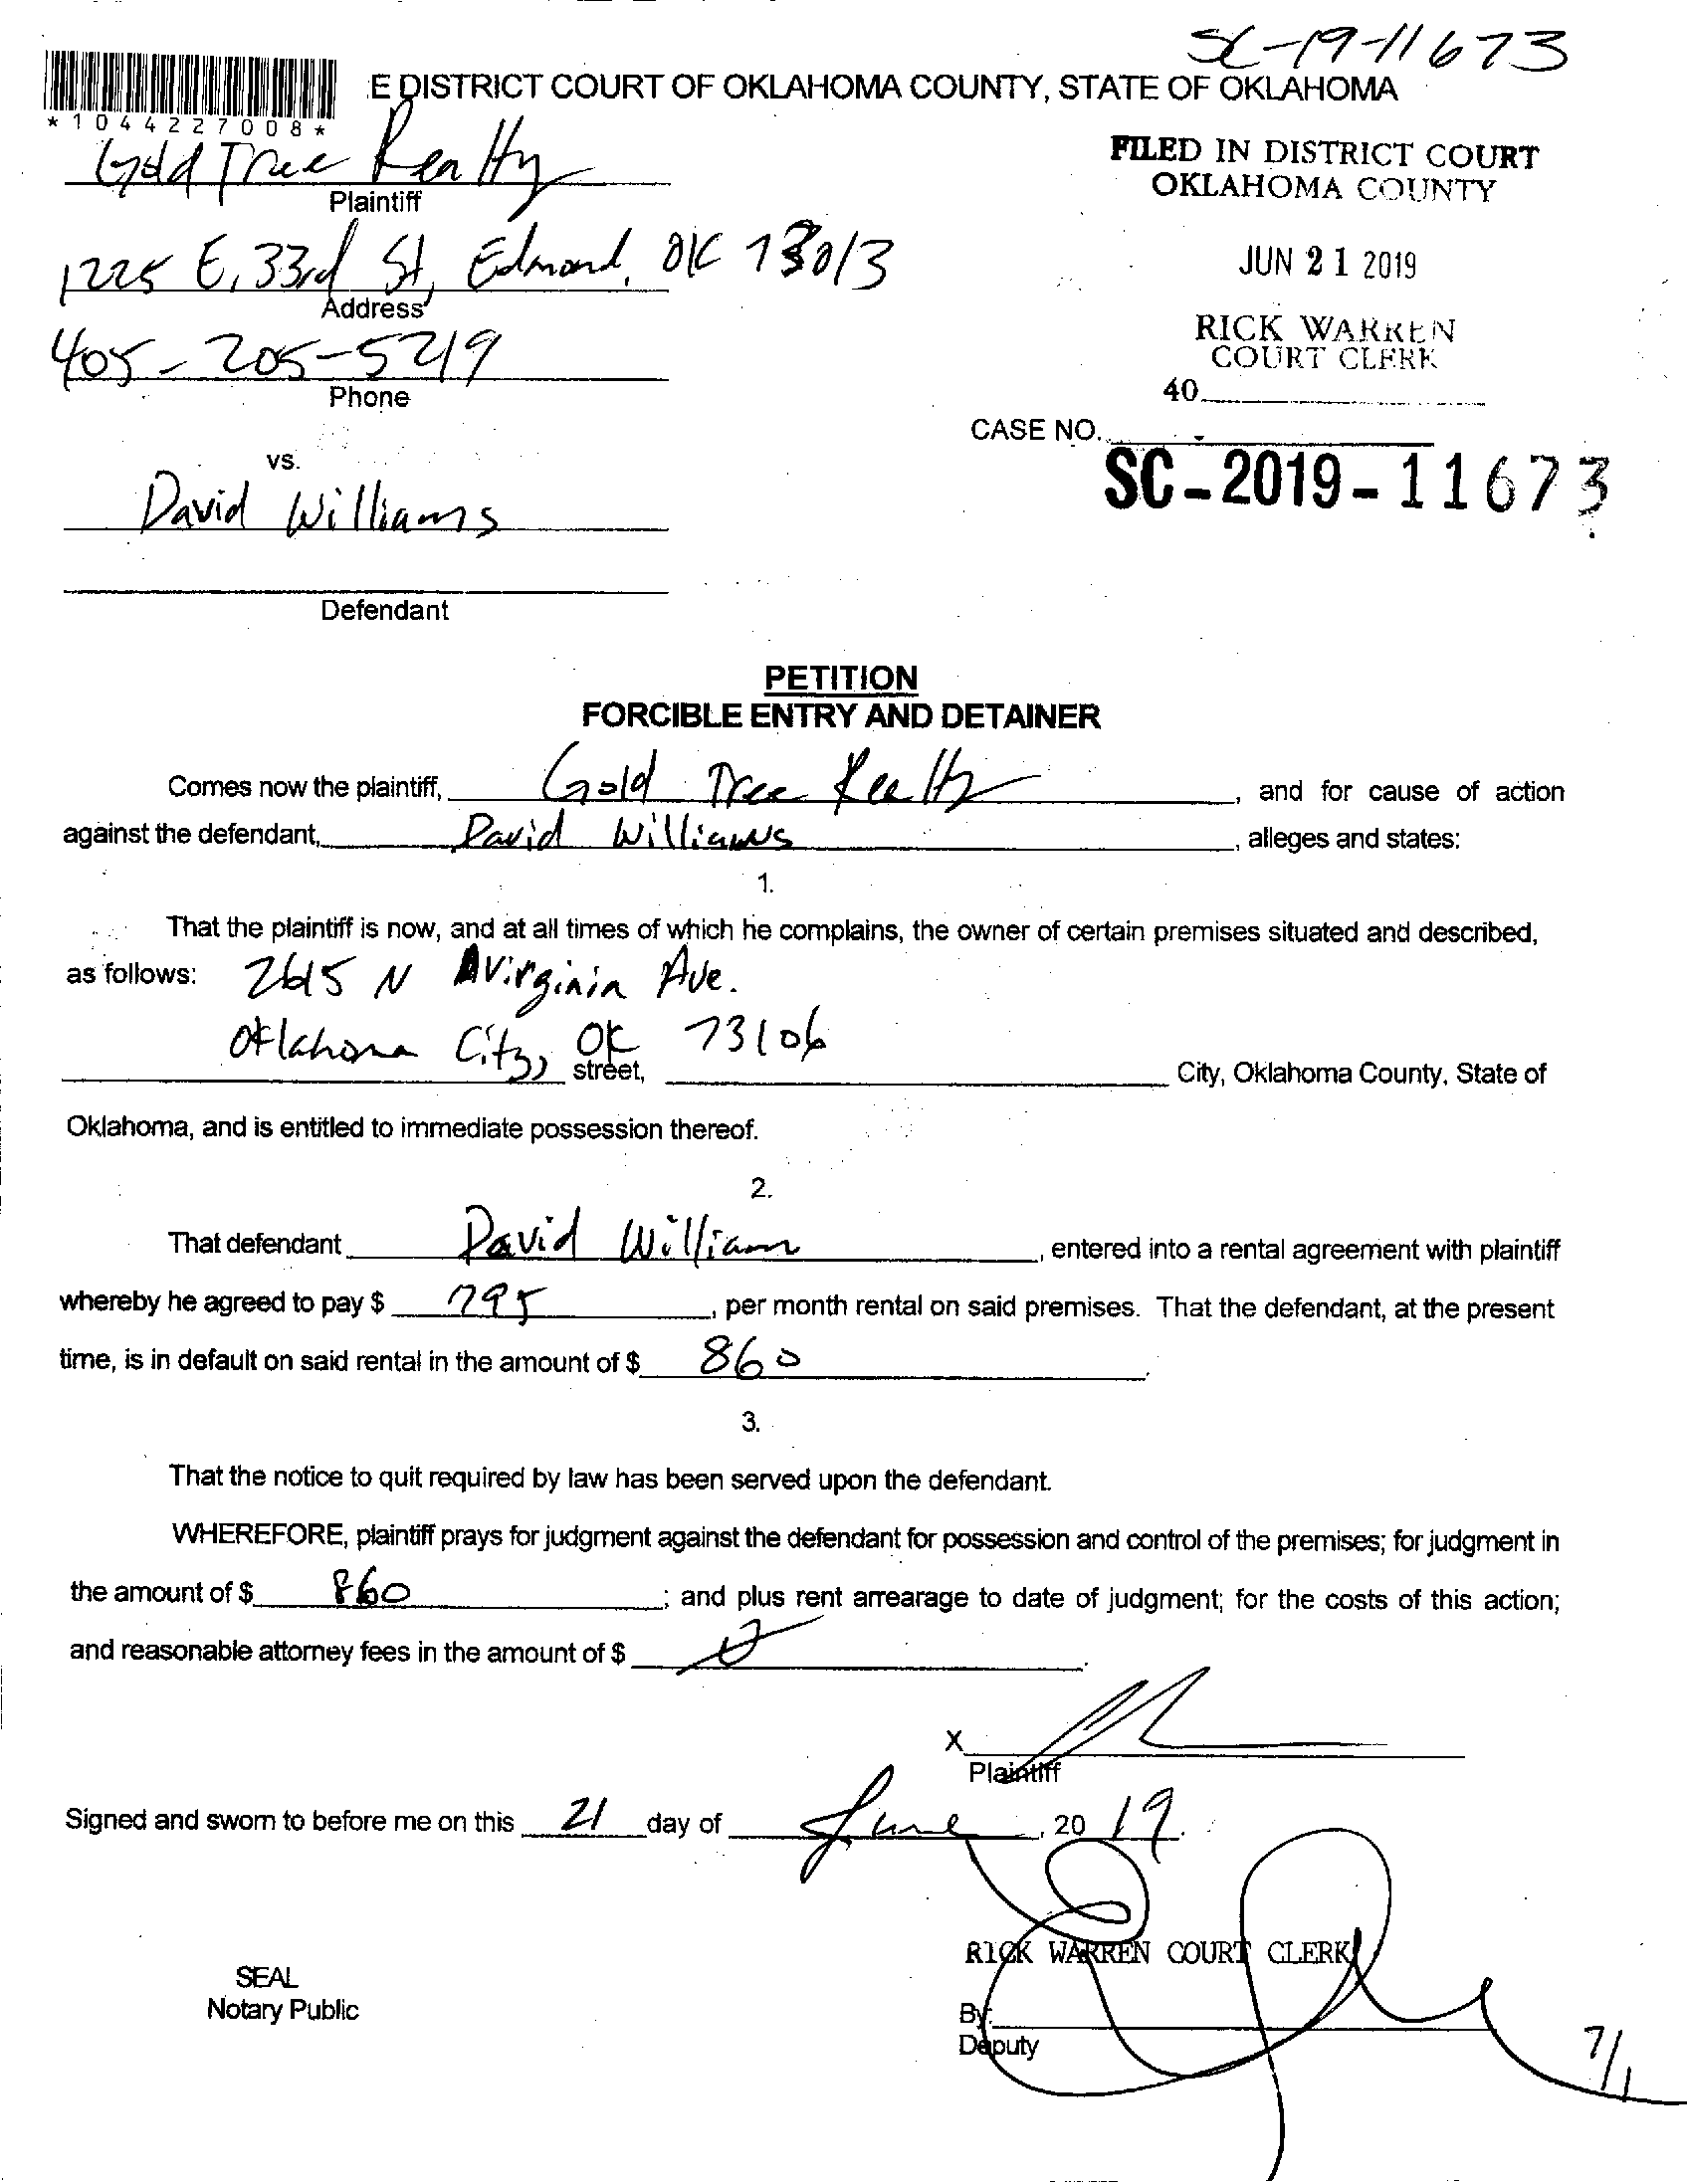 SC-19-11673
E DISTRICT COURT OF OKLAHOMA COUNTY, STATE OF OKLAHOMA
*1044227008*
Gold Tree Realty
Plaintiff
FILED IN DISTRICT COURT
OKLAHOMA COUNTY
1225 E, 33rd St, Edmond, OK 73013
Address
JUN 21 2019
405-205-5219
Phone
RICK WARREN
COURT CLERK
40
CASE NO.
SC-2019-11673
vs.
David Williams
Defendant
PETITION
FORCIBLE ENTRY AND DETAINER
Comes now the plaintiff, Gold Tree Realty, and for cause of action
against the defendant, David Williams, alleges and states:
1.
That the plaintiff is now, and at all times of which he complains, the owner of certain premises situated and described,
as follows: 2615 N Virginia Ave.
Oklahoma City, OK 73106
street, City, Oklahoma County, State of
Oklahoma, and is entitled to immediate possession thereof.
2.
That defendant David William, entered into a rental agreement with plaintiff
whereby he agreed to pay $ 795, per month rental on said premises. That the defendant, at the present
time, is in default on said rental in the amount of $ 860.
3.
That the notice to quit required by law has been served upon the defendant.
WHEREFORE, plaintiff prays for judgment against the defendant for possession and control of the premises; for judgment in
the amount of $ 860; and plus rent arrearage to date of judgment; for the costs of this action;
and reasonable attorney fees in the amount of $ 0.
X
Plaintiff
Signed and sworn to before me on this 21 day of June, 2019.
RICK WARREN COURT CLERK
SEAL
Notary Public
By:
Deputy
7/1